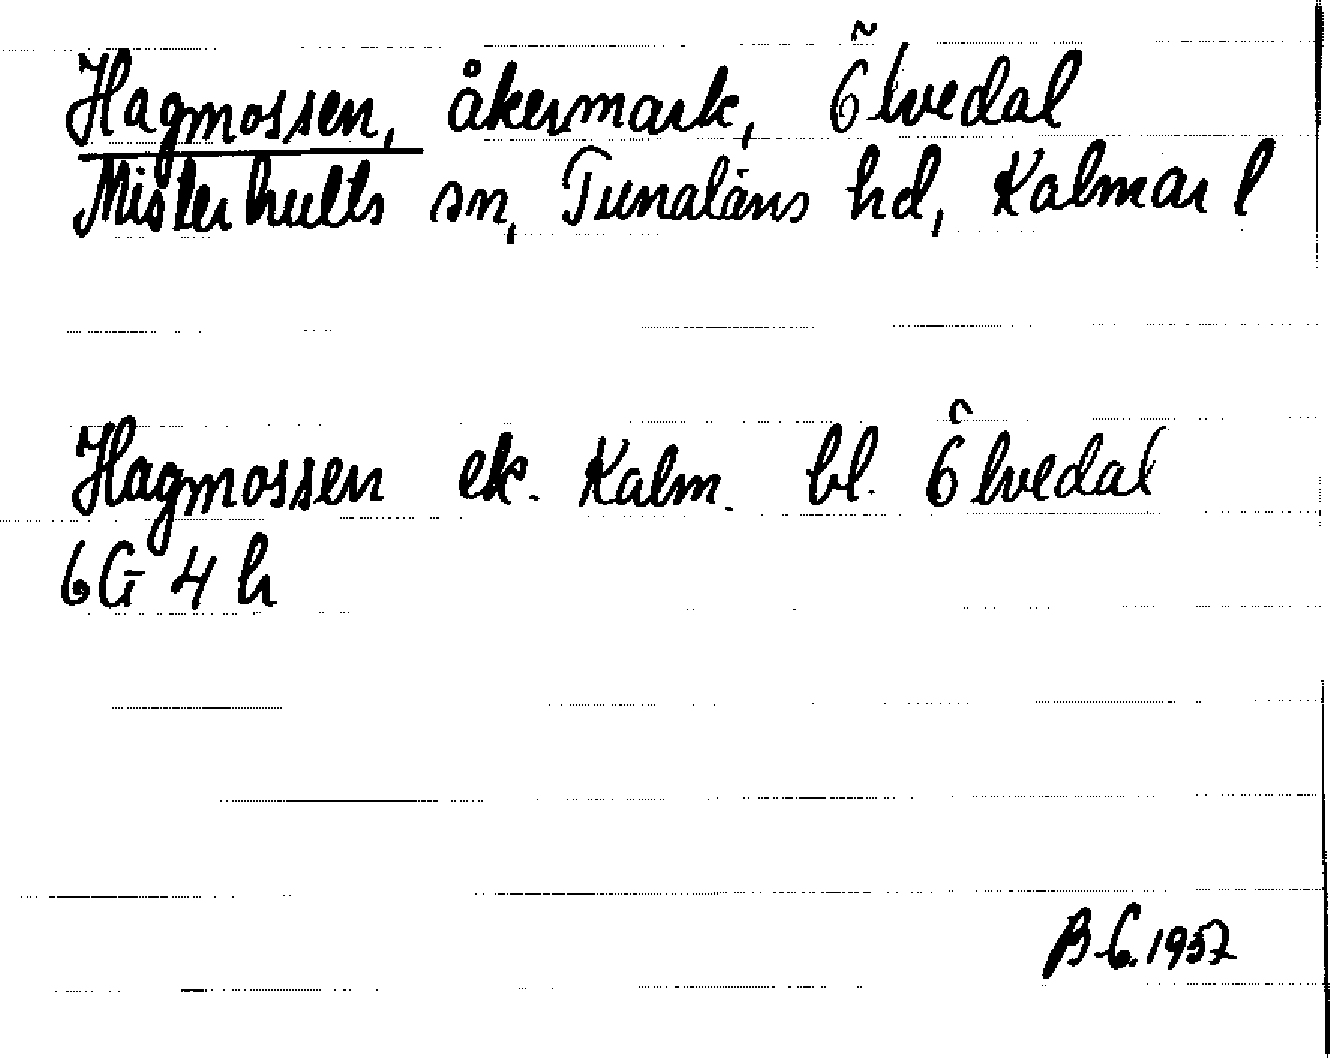 Hagmossen, åkermark, Ölvedal
Misterhults sn, Tunaläns hd, Kalmar l
Hagmossen ek. Kalm. bl. Ölvedal
6G 4h
1957